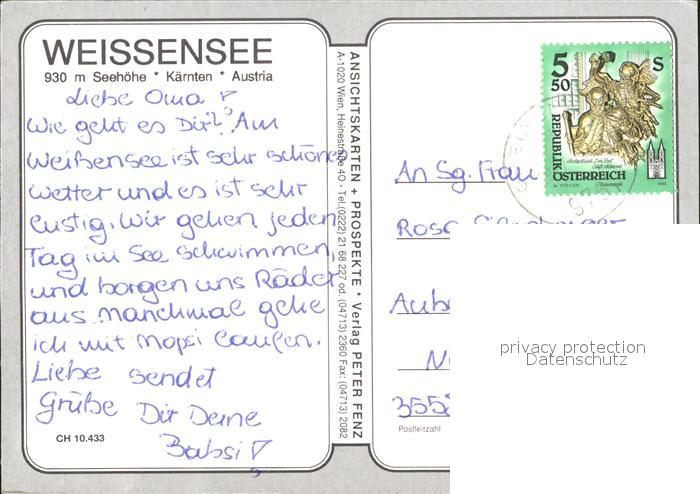 WEISSENSEE
930 m Seehöhe * Kärnten * Austria
Liebe Oma!
Wie geht es Dir? Am
Weißensee ist sehr schönes
Wetter und es ist sehr
lustig. Wir gehen jeden
Tag im See schwimmen,
und borgen uns Räder
aus. Manchmal gehe
ich mit Mopsi laufen.
Liebe sendet
Grüße Dir Deine
Babsi!
CH 10.433
ANSICHTSKARTEN + PROSPEKTE * Verlag PETER FENZ
A-1020 Wien, Heinestraße 40 - Tel. (0222) 21 68 227 od. (04713) 2360 Fax: (04713) 2082
5 50 S
REPUBLIK
ÖSTERREICH
An Sg. Frau
355
Postleitzahl
privacy protection
Datenschutz